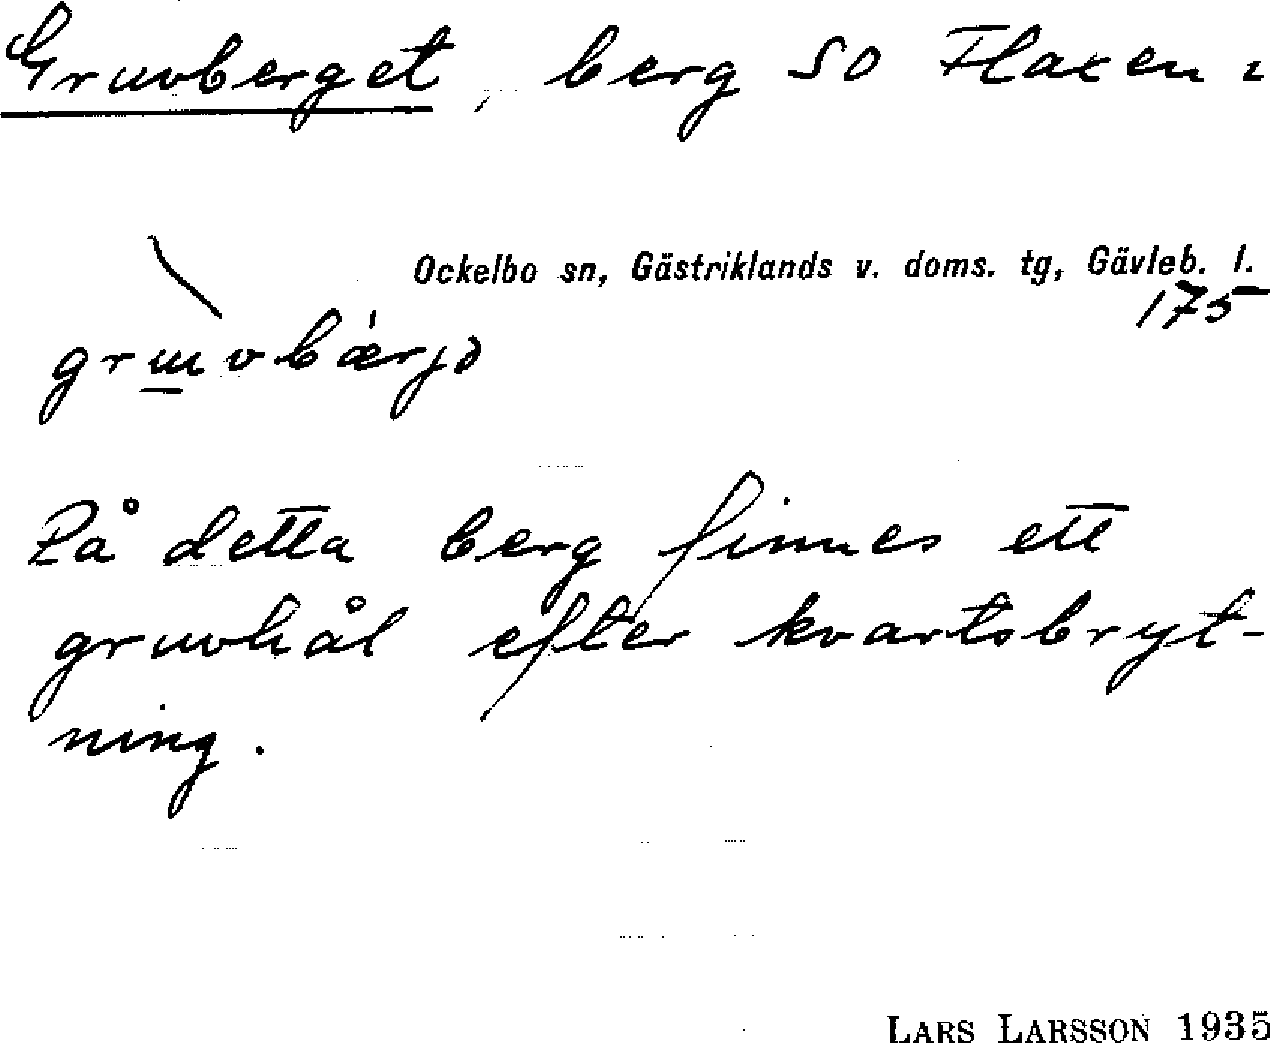 Gruvberget, berg SO Flaxen i
Ockelbo sn, Gästriklands v. doms. tg, Gävleb. l.
175
På detta berg finnes ett
gruvhål efter kvartsbryt-
ning.
LARS LARSSON 1935